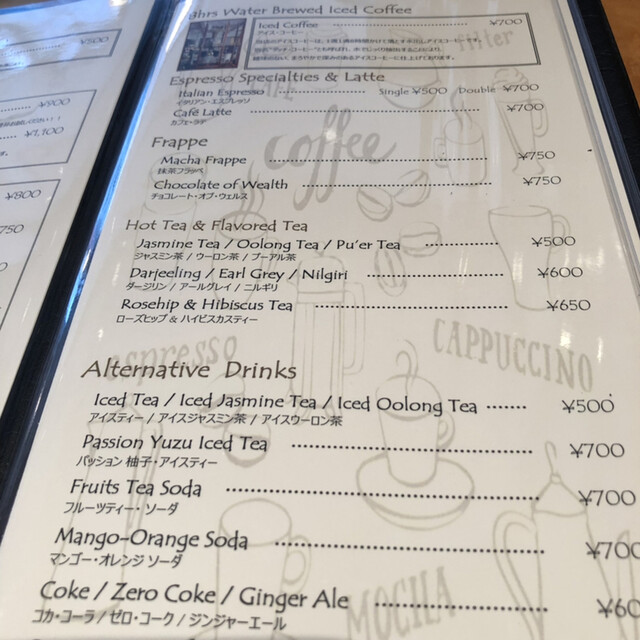 8hrs Water Brewed Iced Coffee
Iced Coffee ¥700
アイス・コーヒー
Espresso Specialties & Latte
Italian Espresso Single ¥500 Double ¥700
イタリアン・エスプレッソ
Café Latte ¥700
カフェ・ラテ
Frappe
Macha Frappe ¥750
抹茶フラッペ
Chocolate of Wealth ¥750
チョコレート・オブ・ウェルス
Hot Tea & Flavored Tea
Jasmine Tea / Oolong Tea / Pu'er Tea ¥500
ジャスミン茶 / ウーロン茶 / プーアル茶
Darjeeling / Earl Grey / Nilgiri ¥600
ダージリン / アールグレイ / ニルギリ
Rosehip & Hibiscus Tea ¥650
ローズヒップ & ハイビスカスティー
Alternative Drinks
Iced Tea / Iced Jasmine Tea / Iced Oolong Tea ¥500
アイスティー / アイスジャスミン茶 / アイスウーロン茶
Passion Yuzu Iced Tea ¥700
パッション 柚子・アイスティー
Fruits Tea Soda ¥700
フルーツティー・ソーダ
Mango-Orange Soda ¥700
マンゴー・オレンジ ソーダ
Coke / Zero Coke / Ginger Ale ¥60
コカ・コーラ / ゼロ・コーク / ジンジャーエール
¥500
¥900
¥1,100
¥800
750
coffee
espresso
CAPPUCCINO
MOCHA